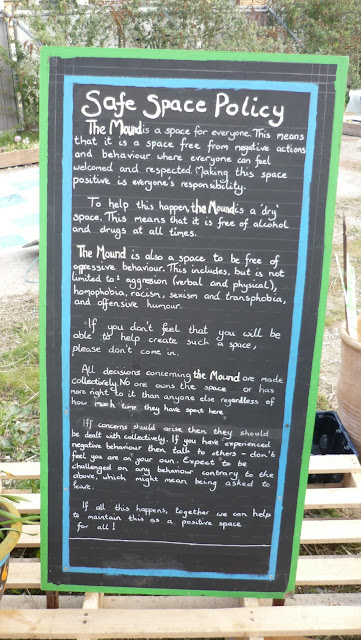 Safe Space Policy
The Mound is a space for everyone. This means
that it is a space free from negative actions
and behaviour where everyone can feel
welcomed and respected. Making this space
positive is everyone's responsibility.
To help this happen, the Mound is a 'dry'
space. This means that it is free of alcohol
and drugs at all times.
The Mound is also a space to be free of
oppressive behaviour. This includes, but is not
limited to: aggression (verbal and physical),
homophobia, racism, sexism and transphobia,
and offensive humour.
If you don't feel that you will be
able to help create such a space,
please don't come in.
All decisions concerning the Mound are made
collectively. No one owns the space or has
more right to it than anyone else regardless of
how much time they have spent here.
If concerns should arise then they should
be dealt with collectively. If you have experienced
negative behaviour then talk to others - don't
feel you are on your own. Expect to be
challenged on any behaviour contrary to the
above, which might mean being asked to
leave.
If all this happens, together we can help
to maintain this as a positive space
for all!